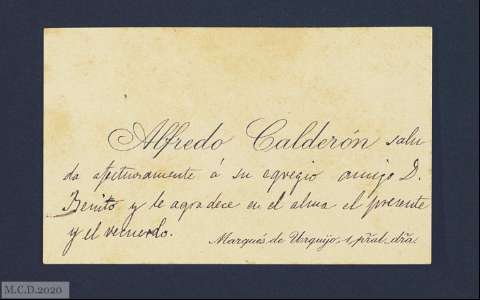 Alfredo Calderón salu-
da afectuosamente á su egregio amigo D.
Benito y le agradece en el alma el presente
y el recuerdo.
Marqués de Urquijo, 1, pral. dra.
M.C.D.2020